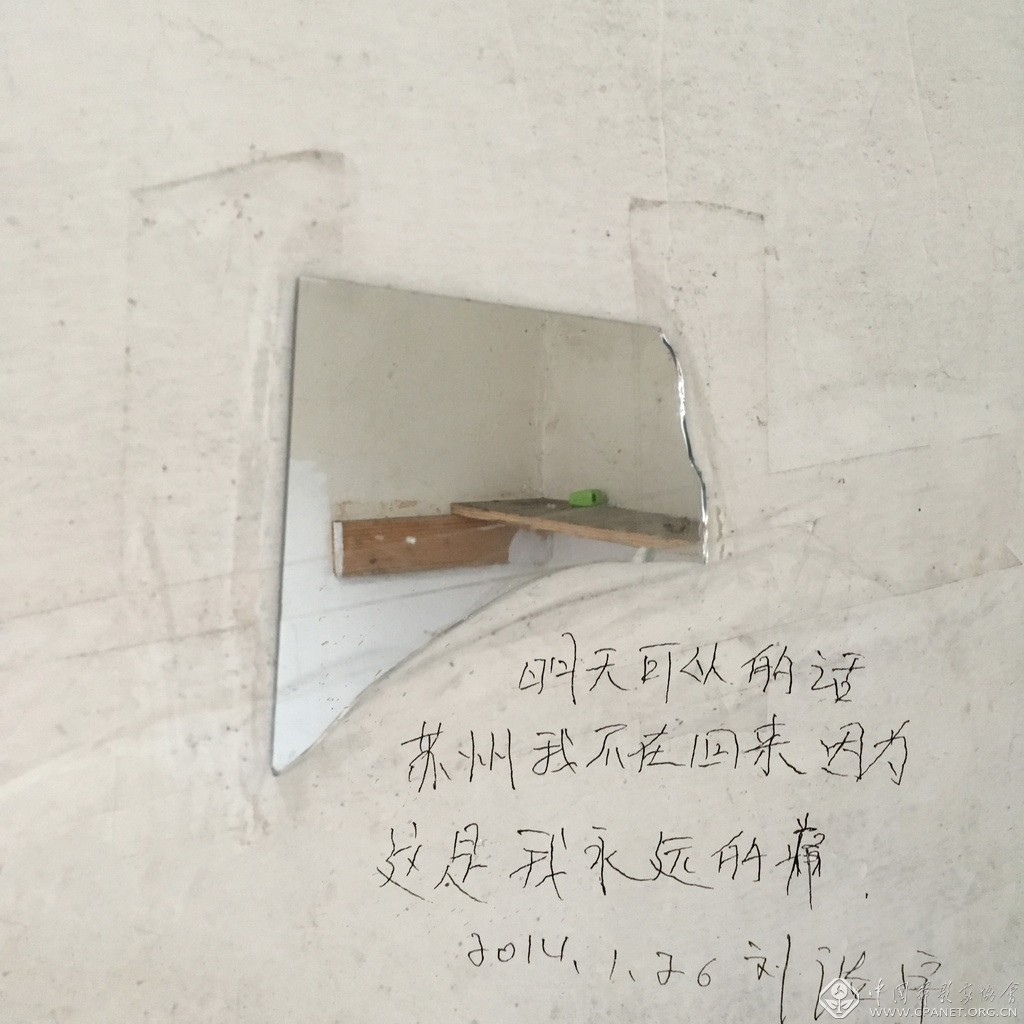 明天可以的话
苏州我不在回来因为
这是我永远的痛.
2014.1.26 刘
中国摄影家协会
WWW.CPANET.ORG.CN